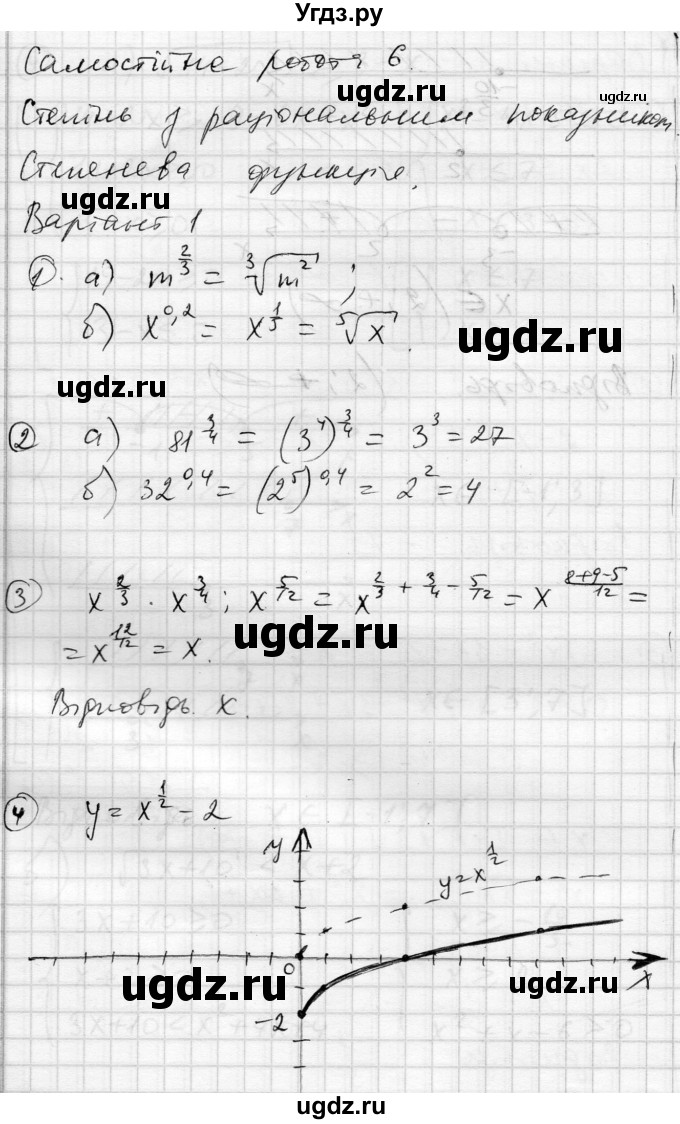 Угдз.ру
Самостійна робота 6.
ugdz.ru
Степінь з раціональним показником.
Степенева функція.
ugdz.ru
Варіант 1
1. а) m^{2/3} = ∛(m²) ;
б) x^{0,2} = x^{1/5} = ⁵√x .
ugdz.ru
ugdz.ru
2 а) 81^{3/4} = (3^4)^{3/4} = 3^3 = 27
б) 32^{0,4} = (2^5)^{0,4} = 2^2 = 4
3 x^{2/3} · x^{3/4} : x^{5/12} = x^{2/3 + 3/4 - 5/12} = x^{(8+9-5)/12} =
ugdz.ru
= x^{12/12} = x.
Відповідь. x.
4 y = x^{1/2} - 2
y
y = x^{1/2}
0
x
ugdz.ru
ugdz.ru
-2
ugdz.ru